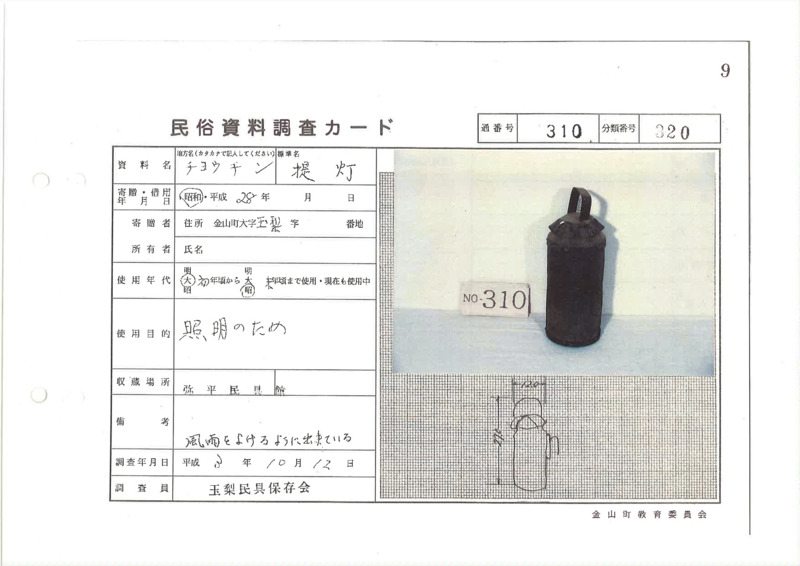 9
民俗資料調査カード
通番号 310 分類番号 320
資料名 地方名(カタカナで記入してください) チョウチン 標準名 提灯
寄贈・借用年月日 昭和・平成 28年 月 日
寄贈者 住所 金山町大字玉梨字 番地
所有者 氏名
使用年代 明大昭 初年頃から 明大昭 末年頃まで使用・現在も使用中
使用目的 照明のため
収蔵場所 弥平民具館
備考 風雨をよけるように出来ている
調査年月日 平成 3年 10月 12日
調査員 玉梨民具保存会
NO-310
120
金山町教育委員会